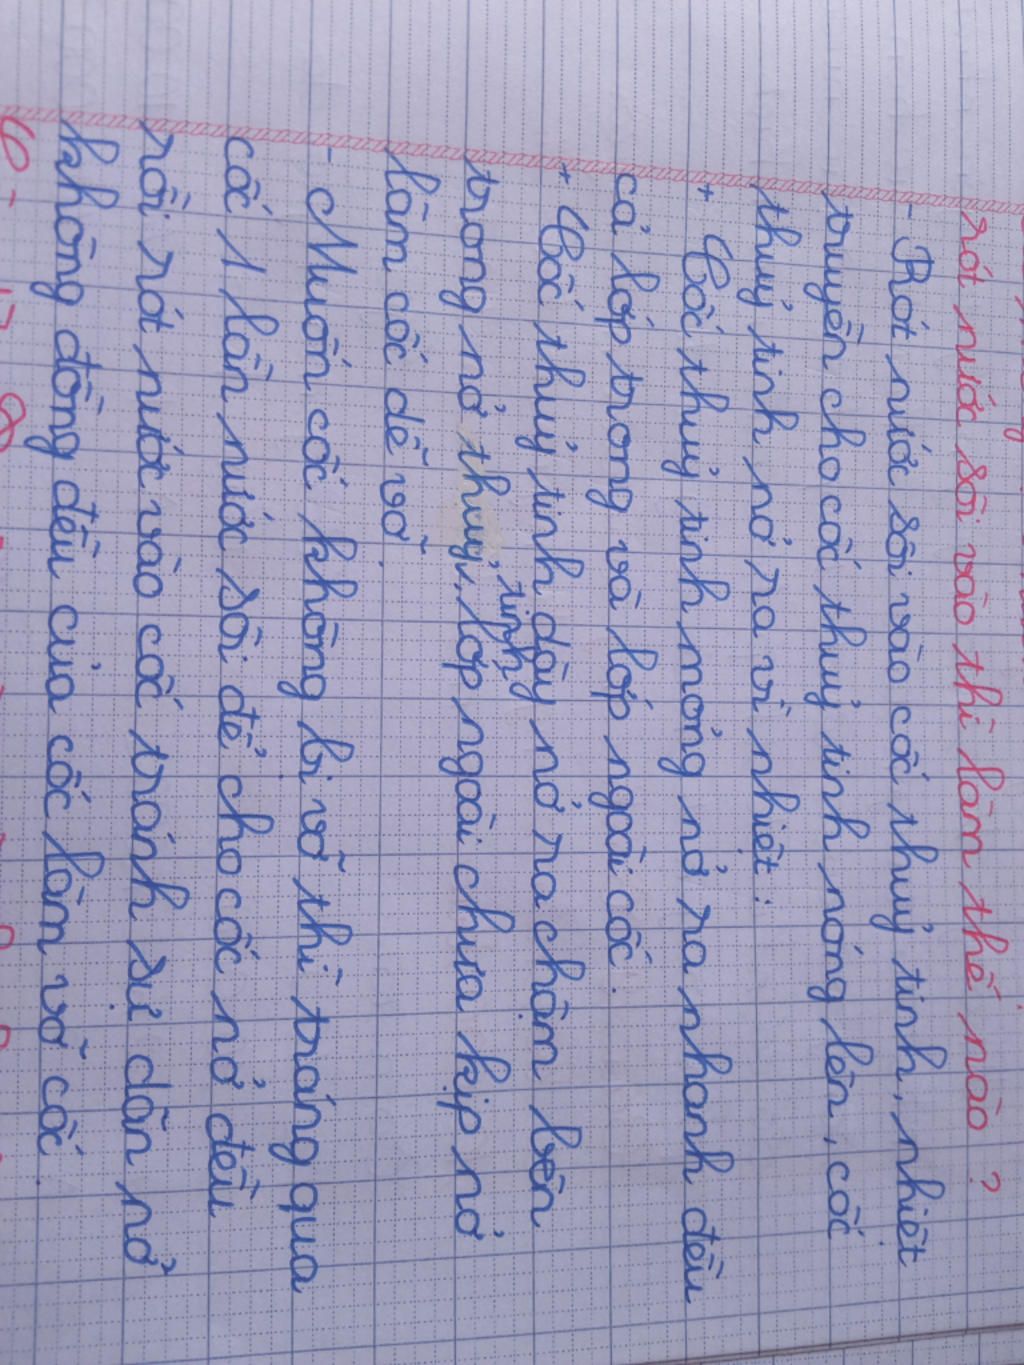 rót nước sôi vào thì làm thế nào ?
- Rót nước sôi vào cốc thuỷ tinh, nhiệt
truyền cho cốc thuỷ tinh nóng lên, cốc
thuỷ tinh nở ra vì nhiệt:
+ Cốc thuỷ tinh mỏng nở ra nhanh đều
cả lớp trong và lớp ngoài cốc.
+ Cốc thuỷ tinh dày nở ra chậm bên
trong nở thuỷ tinh, lớp ngoài chưa kịp nở
làm cốc dễ vỡ.
- Muốn cốc không bị vỡ thì tráng qua
cốc 1 lần nước sôi để cho cốc nở đều
rồi rót nước vào cốc tránh sự dãn nở
không đồng đều của cốc làm vỡ cốc.